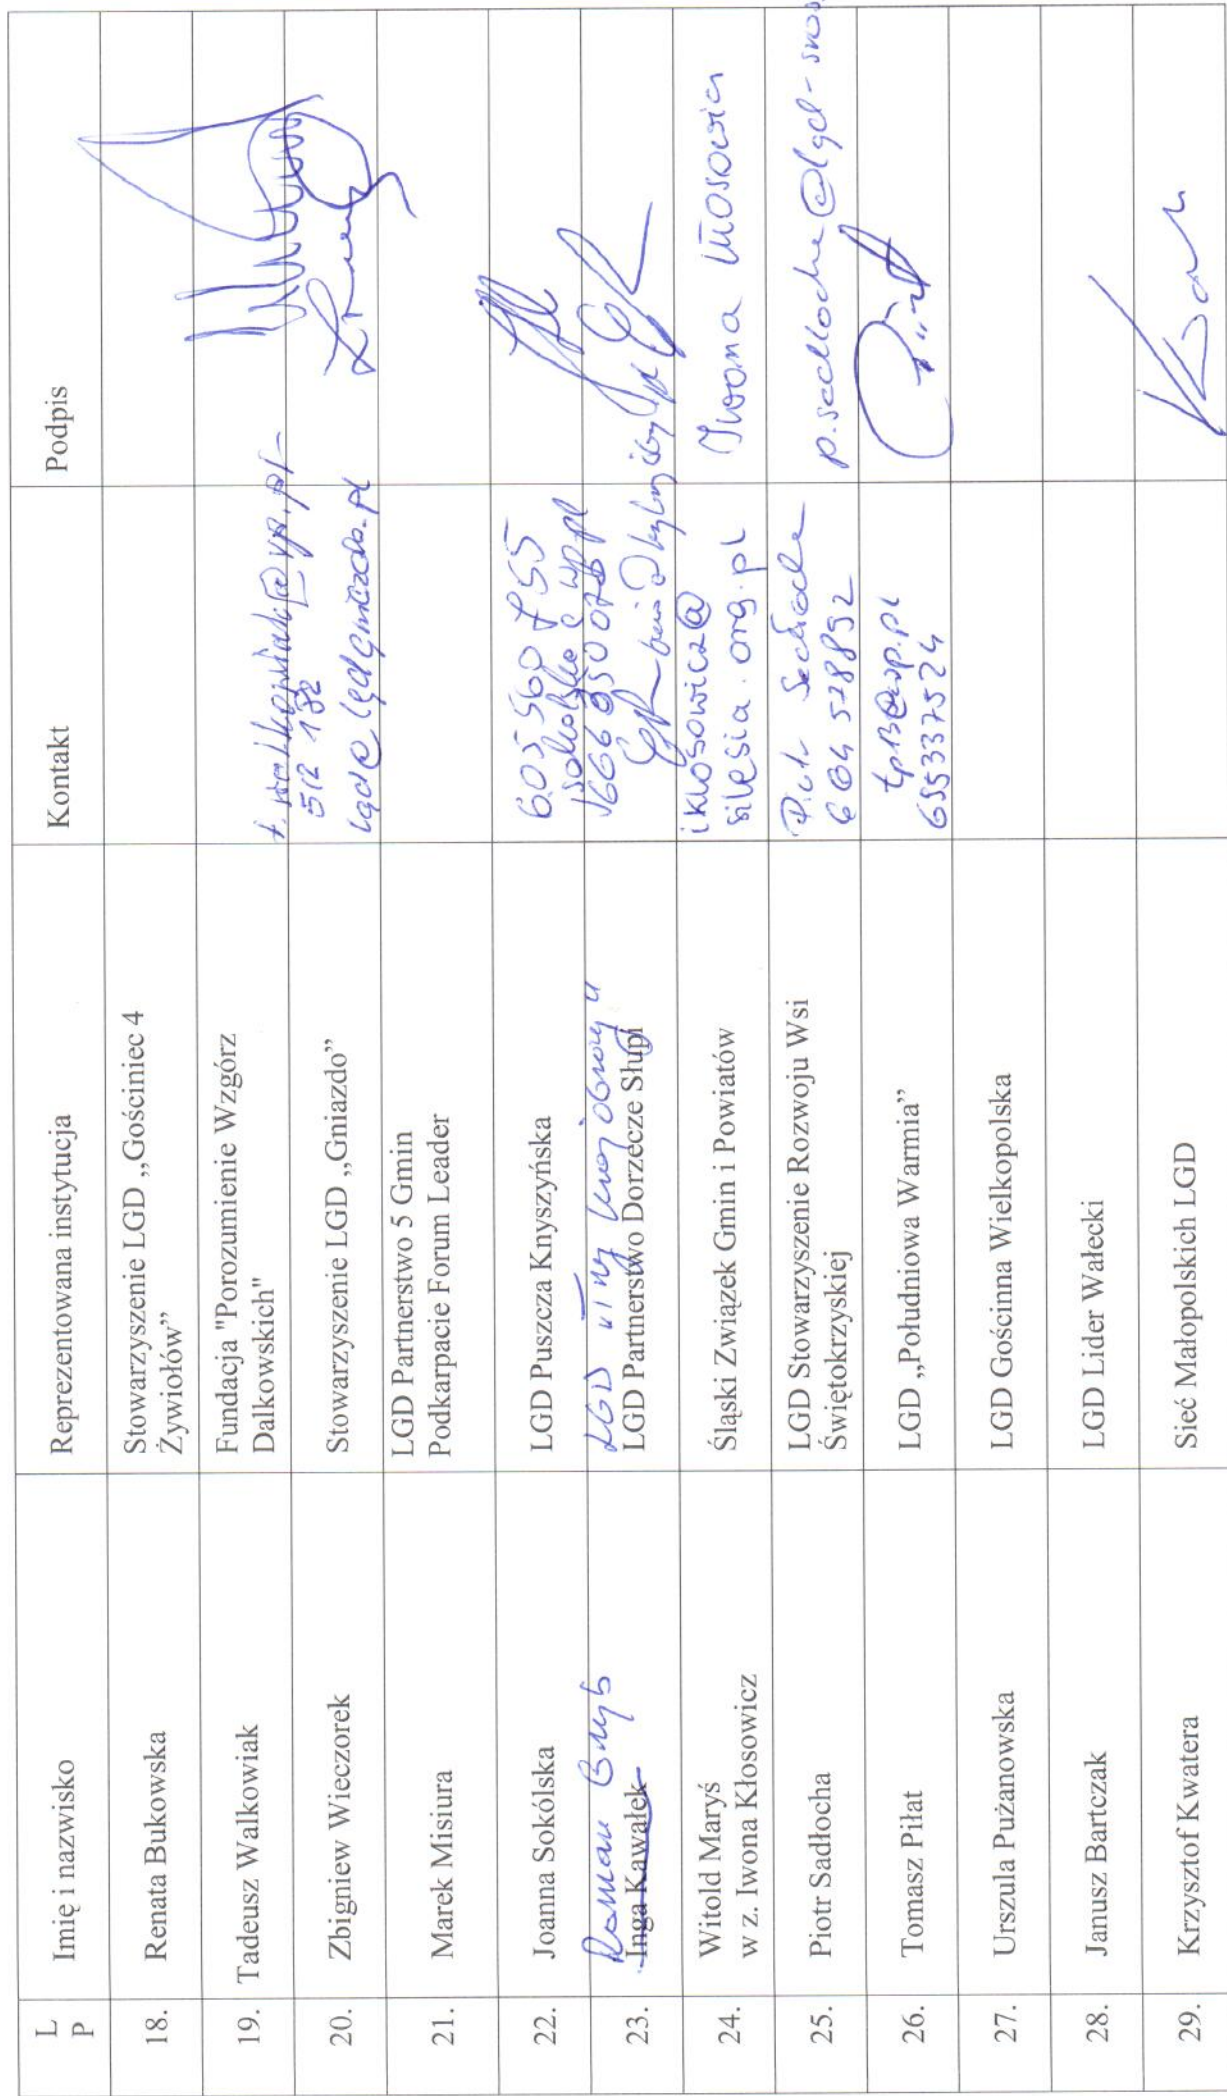 LP Imię i nazwisko Reprezentowana instytucja Kontakt Podpis
18. Renata Bukowska Stowarzyszenie LGD „Gościniec 4
Żywiołów”
19. Tadeusz Walkowiak Fundacja "Porozumienie Wzgórz
Dalkowskich"
512 182
20. Zbigniew Wieczorek Stowarzyszenie LGD „Gniazdo” lgd@lgdgniazdo.pl
21. Marek Misiura LGD Partnerstwo 5 Gmin
Podkarpacie Forum Leader
22. Joanna Sokólska LGD Puszcza Knyszyńska 605 560 755
Roman LGD
23. Inga Kawałek LGD Partnerstwo Dorzecze Słupi
24. Witold Maryś Śląski Związek Gmin i Powiatów iklosowicz@
w z. Iwona Kłosowicz silesia.org.pl Iwona
25. Piotr Sadłocha LGD Stowarzyszenie Rozwoju Wsi
Świętokrzyskiej
604 578 892
26. Tomasz Piłat LGD „Południowa Warmia” tp13@wp.pl
695337524
27. Urszula Pużanowska LGD Gościnna Wielkopolska
28. Janusz Bartczak LGD Lider Wałecki
29. Krzysztof Kwatera Sieć Małopolskich LGD